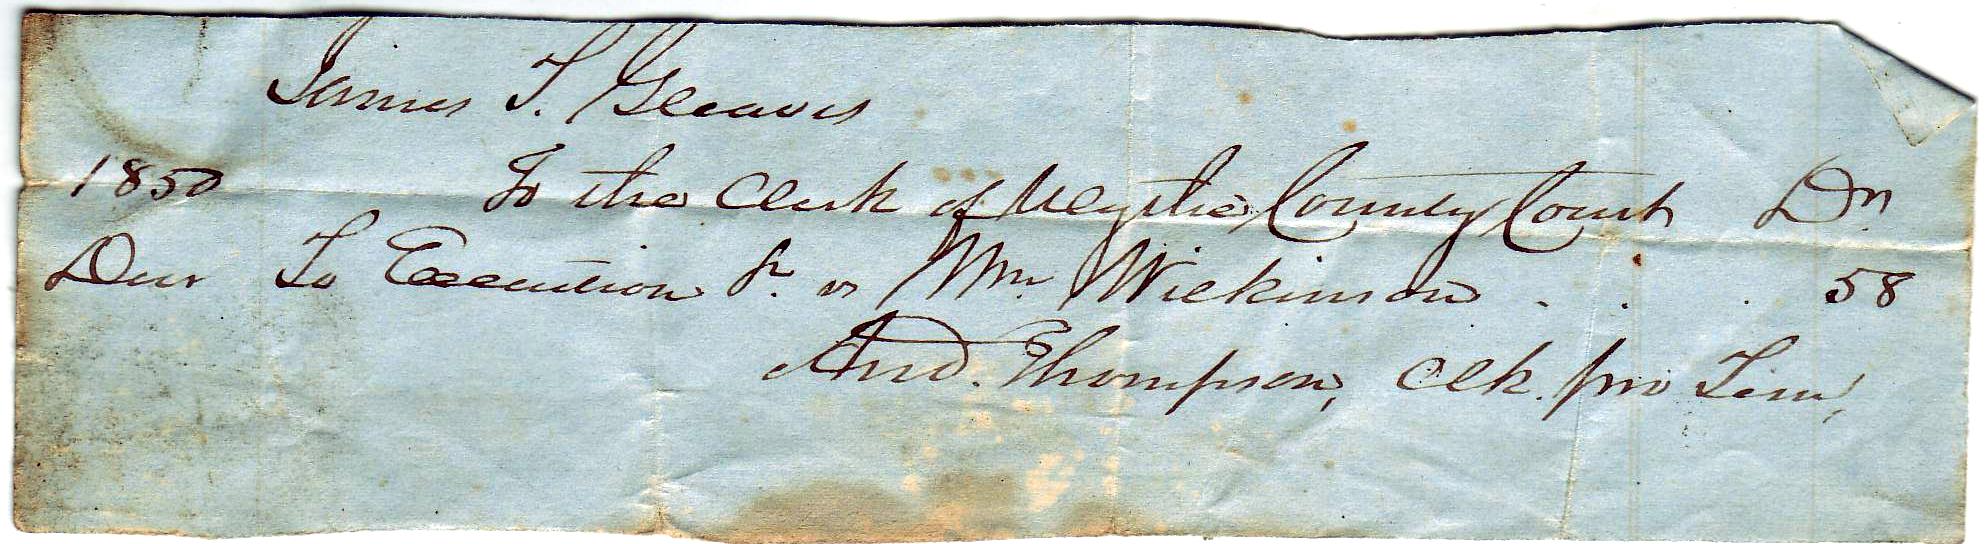 James T. Gleaves
1850 To the Clerk of Wythe County Court Dr
Decr To Execution &c. vs Wm. Wilkinson . . . 58
And. Thompson, Clk. pro Tem,